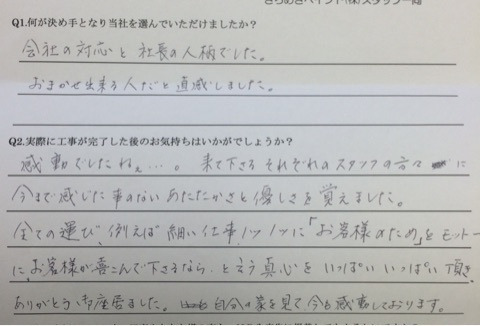 きらめきペイント(株)スタッフ一同
Q1.何が決め手となり当社を選んでいただけましたか？
会社の対応と社長の人柄でした。
おまかせ出来る人だと直感しました。
Q2.実際に工事が完了した後のお気持ちはいかがでしょうか？
感動でしたねぇ…。来て下さる それぞれのスタッフの方々に
今まで感じた事のない あたたかさと優しさを覚えました。
全ての運び、例えば 細い仕事 1ツ1ツに「お客様のため」をモットー
に、お客様が喜こんで下さるなら、と云う真心を いっぱい いっぱい 頂き
ありがとう御座居ました。自分の家を見て 今も感動しております。